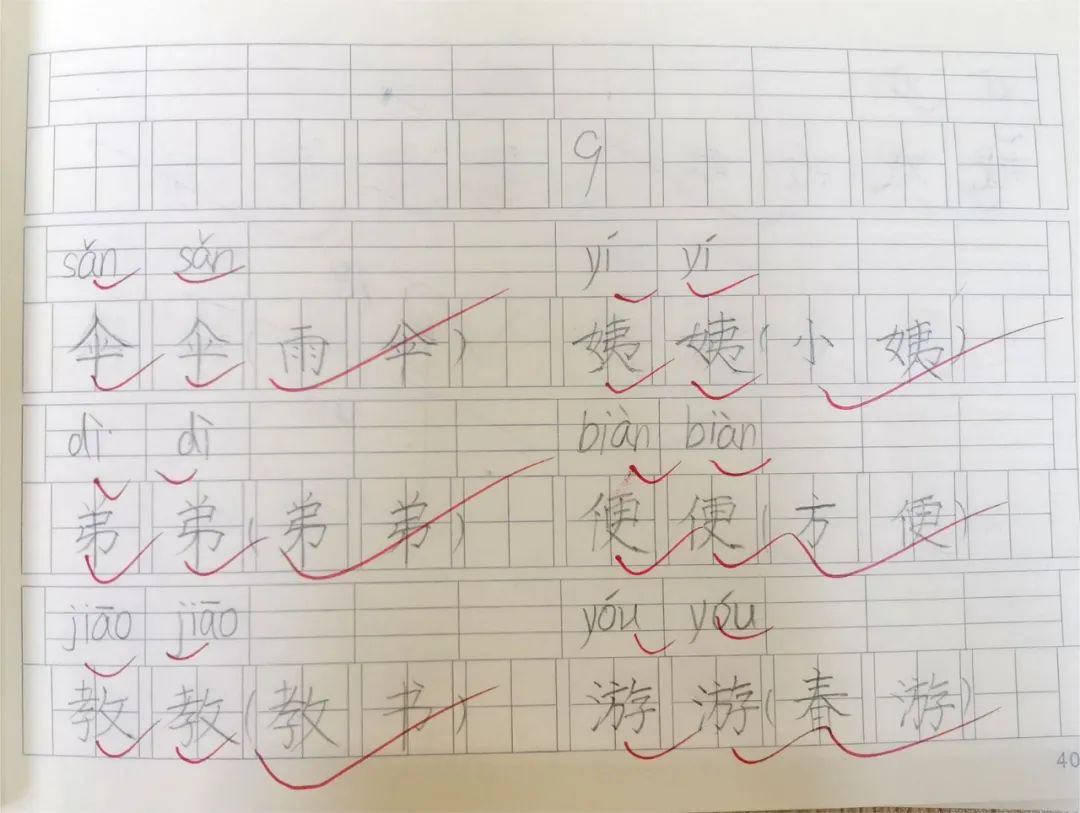 9
sǎn sǎn yí yí
伞 伞 雨 伞) 姨 姨(小 姨)
dì dì biàn biàn
弟 弟(弟 弟) 便 便(方 便)
jiāo jiāo yóu yóu
教 教(教 书) 游 游(春 游)
40